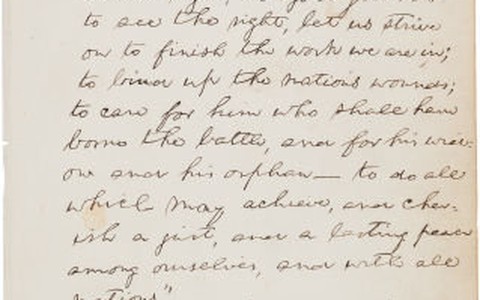 to see the right, let us strive
on to finish the work we are in;
to bind up the nation's wounds;
to care for him who shall have
borne the battle, and for his wid-
ow and his orphan — to do all
which may achieve, and cher-
ish a just, and a lasting peace
among ourselves, and with all
nations"